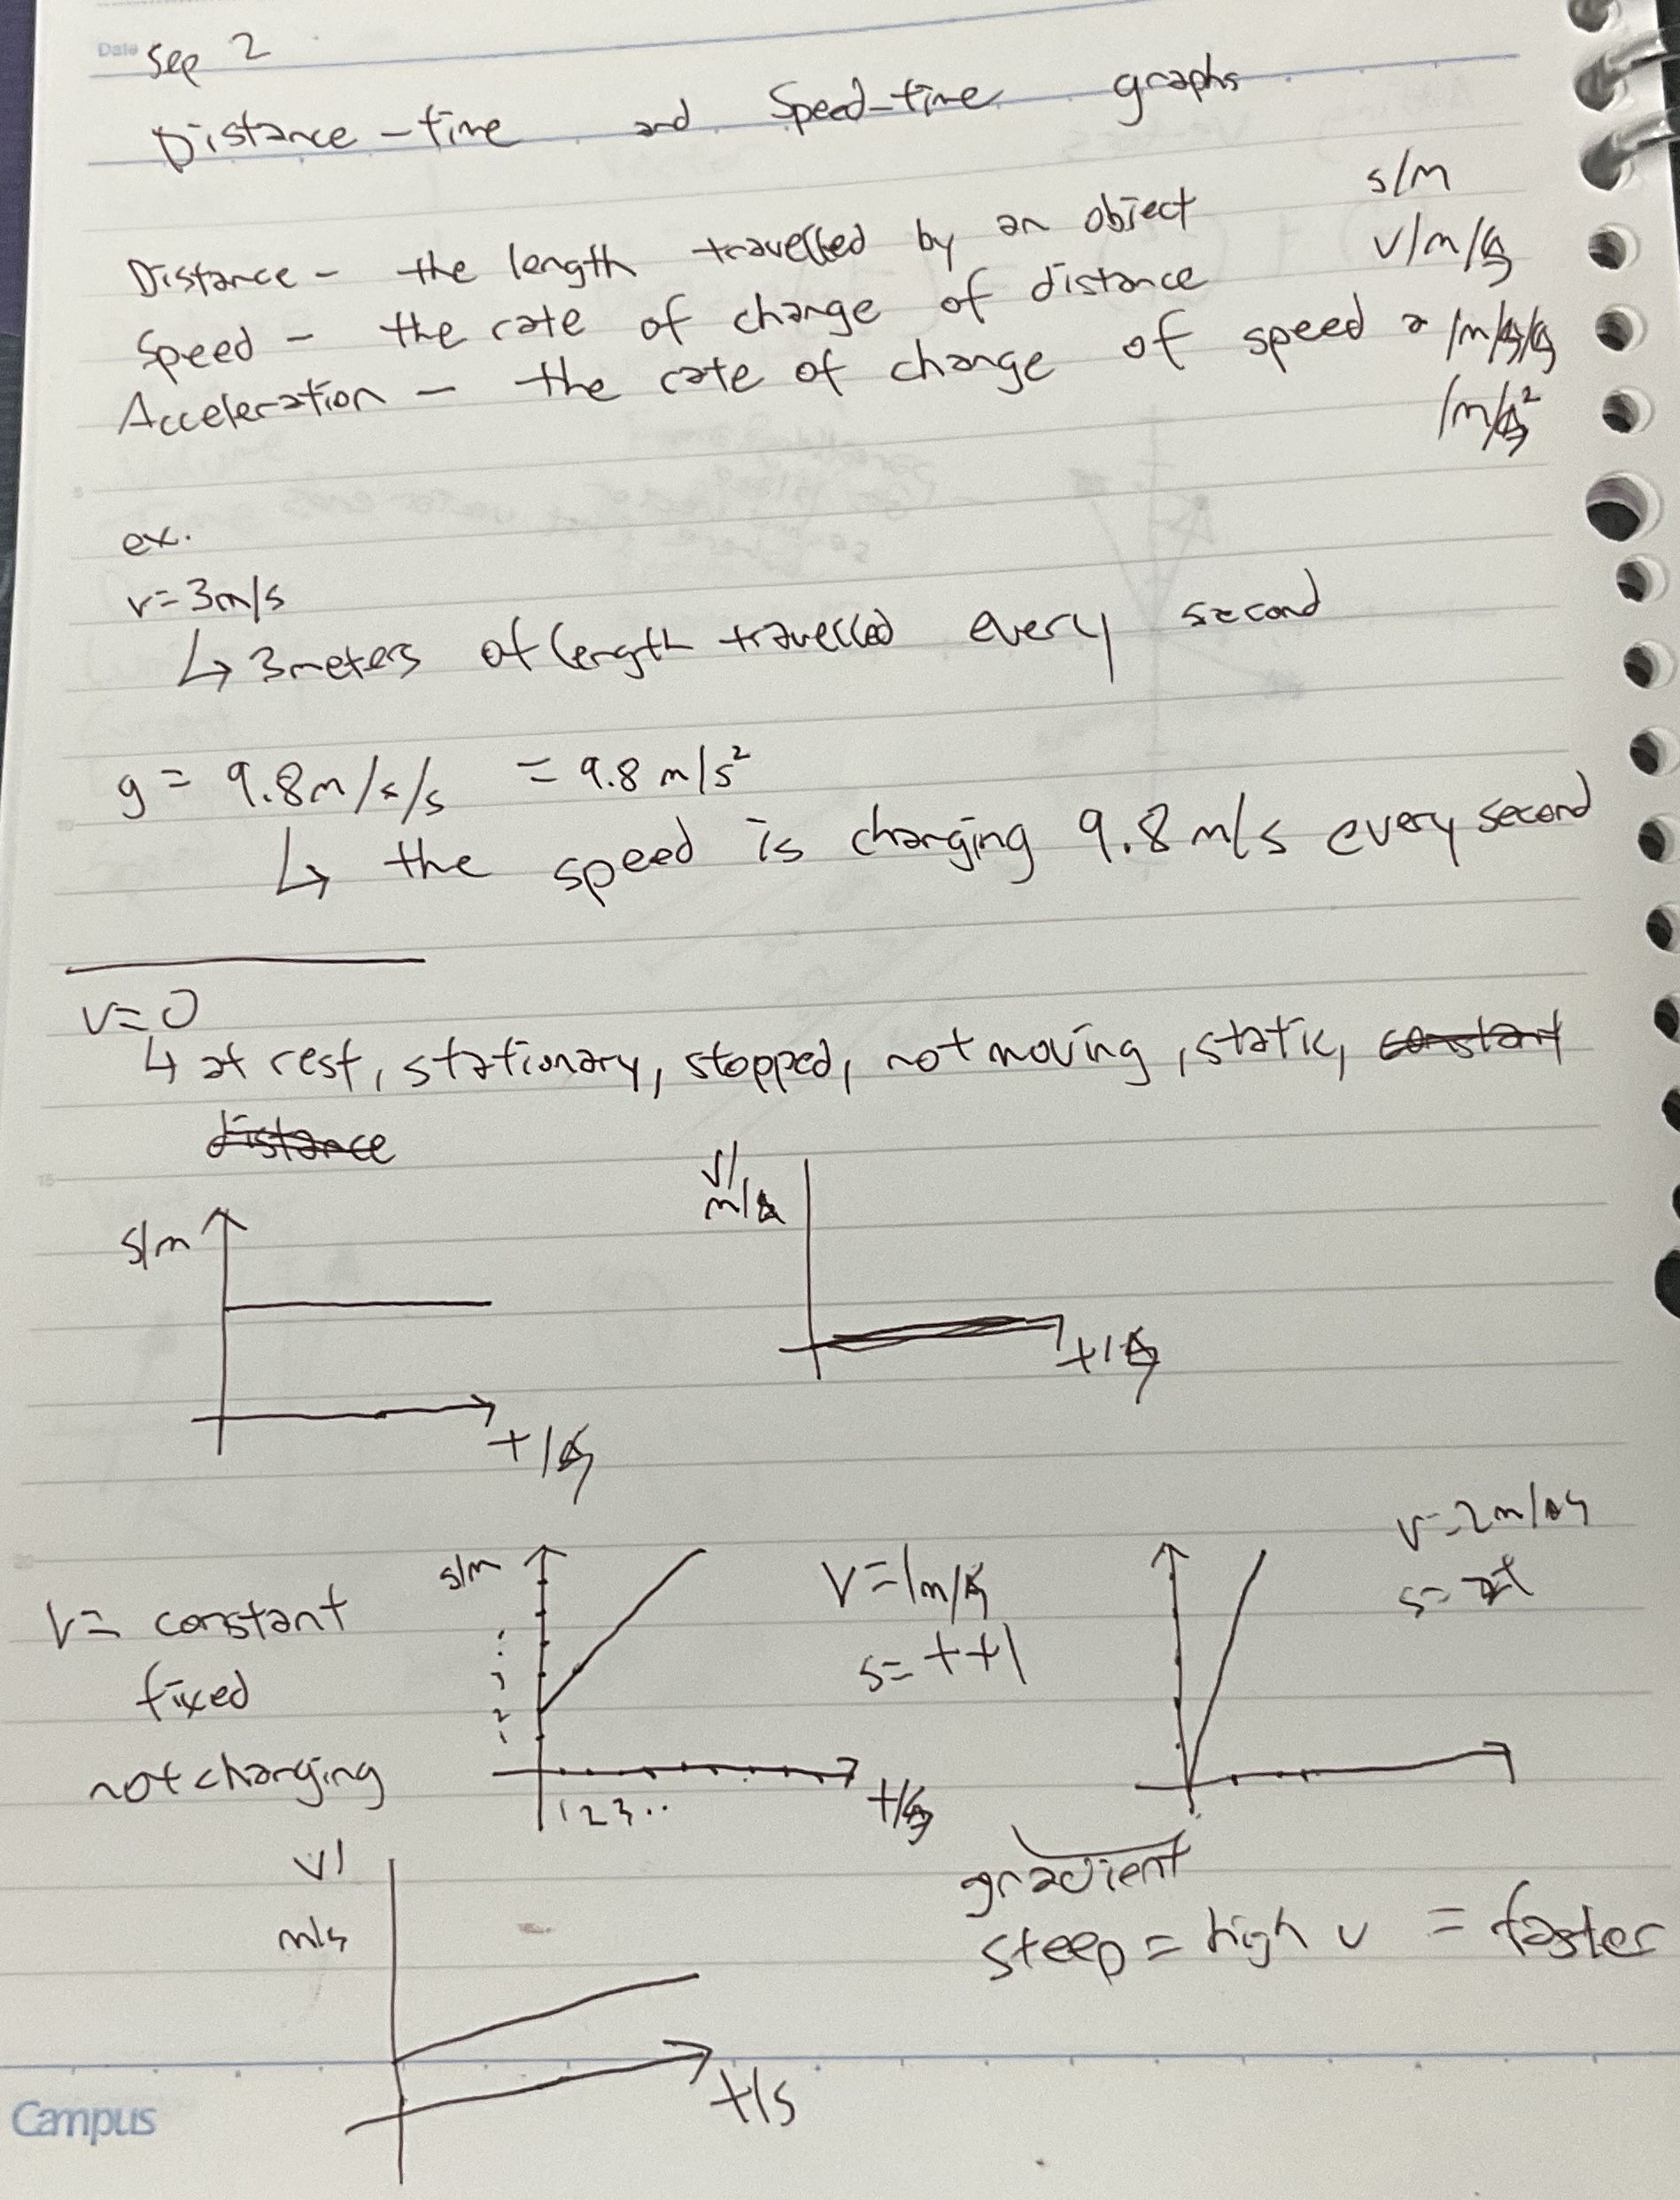 Date Sep 2
Distance - time and Speed-time graphs
s/m
Distance - the length travelled by an object
v/m/s
Speed - the rate of change of distance
Acceleration - the rate of change of speed a /m/s/s
/m/s²
ex.
v=3m/s
↳ 3meters of length travelled every second
g = 9.8m/s/s = 9.8 m/s²
↳ the speed is changing 9.8 m/s every second
v=0
↳ at rest, stationary, stopped, not moving, static, constant
distance
s/m
v/
m/s
t/s
t/s
v= constant
fixed
not changing
s/m
3
2
1
1 2 3 ..
t/s
v=1m/s
s= t+1
v=2m/s
s= 2t
gradient
steep = high v = faster
v/
m/s
t/s
Campus